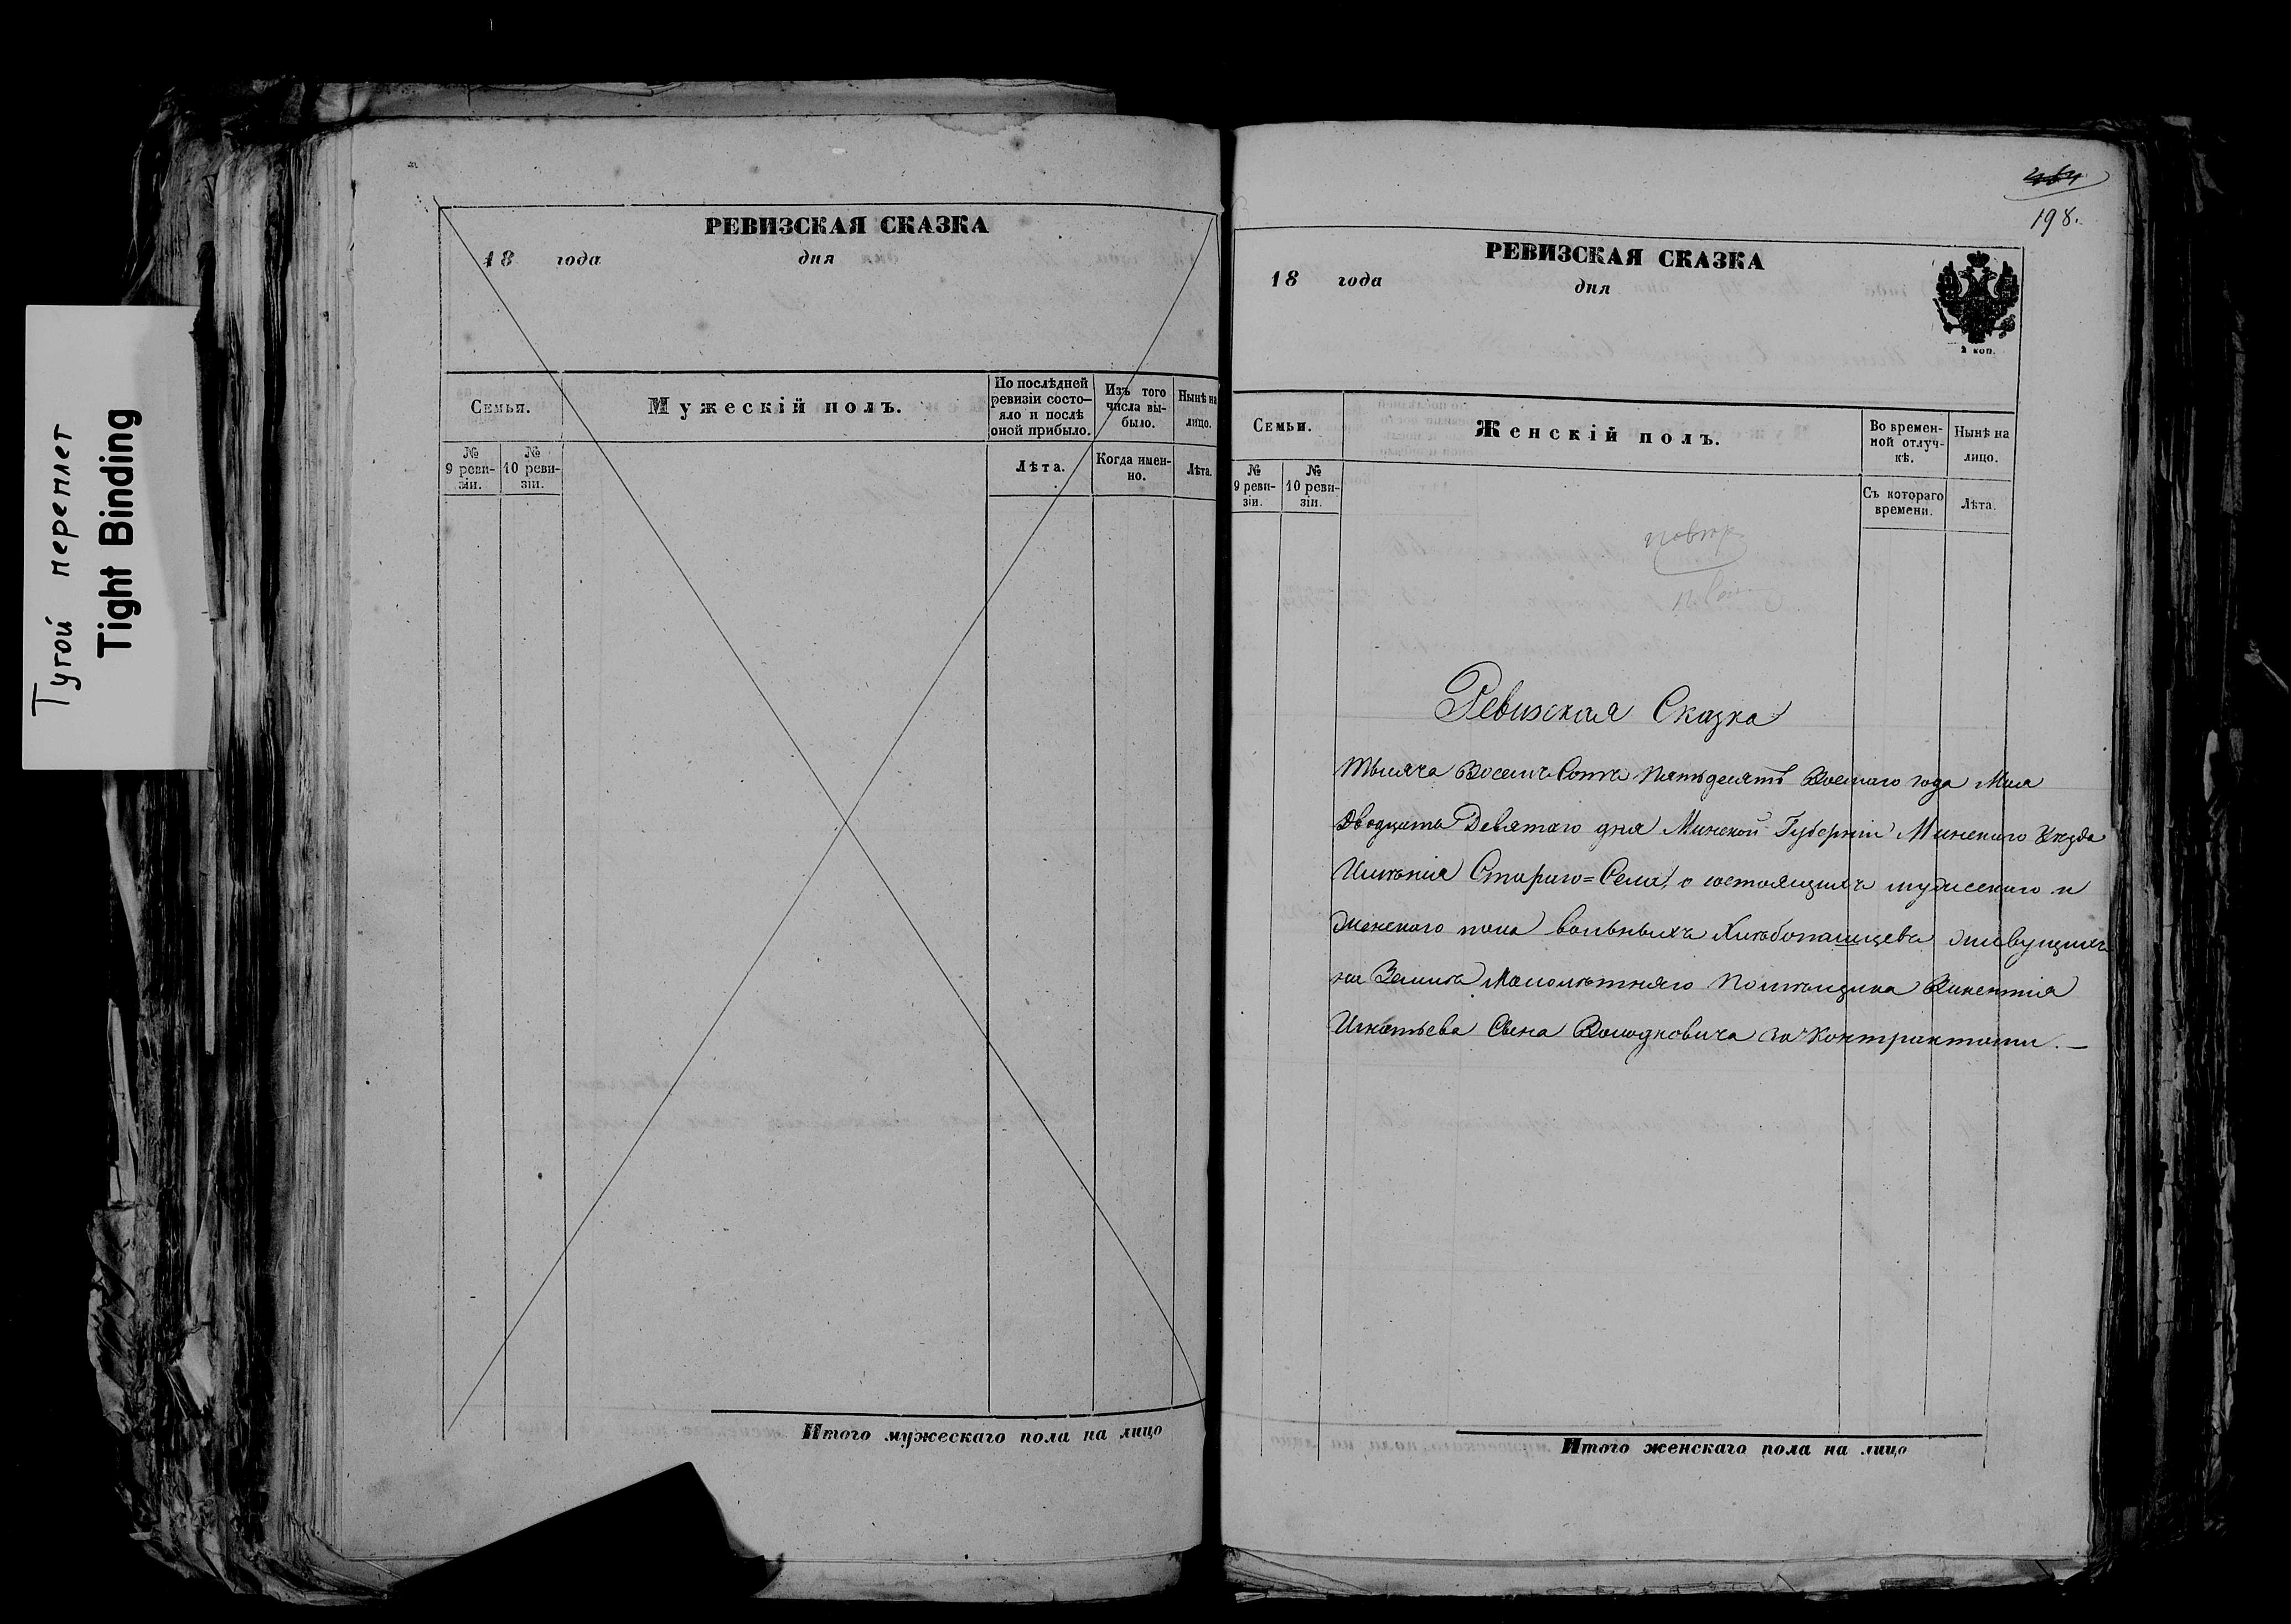 Тугой переплет
Tight Binding
РЕВИЗСКАЯ СКАЗКА
18 года дня
Семьи.
Мужескій полъ.
По послѣдней ревизіи состо-
яло и послѣ
оной прибыло.
Изъ того
числа вы-
было.
Нынѣ на
лицо.
№
9 реви-
зіи.
№
10 реви-
зіи.
Лѣта.
Когда имен-
но.
Лѣта.
Итого мужескаго пола на лицо
198.
РЕВИЗСКАЯ СКАЗКА
18 года дня
2 коп.
Семьи.
Женскій полъ.
Во времен-
ной отлуч-
кѣ.
Нынѣ на
лицо.
№
9 реви-
зіи.
№
10 реви-
зіи.
Съ котораго
времени.
Лѣта.
повтор.
Ревизская Сказка
Тысяча Восемъ Сотъ Пятьдесятъ Восмаго года Мая
Двадцать Девятаго дня Минской Губерніи Минскаго Уѣзда
Имѣнія Стараго=Села, о состоящихъ мужескаго и
женскаго пола вольныхъ Хлѣбопашцевъ живущихъ
на Землѣ Малолѣтняго Помѣщика Викентія
Игнатьева Сына Володковича за Контрактами.—
Итого женскаго пола на лицо